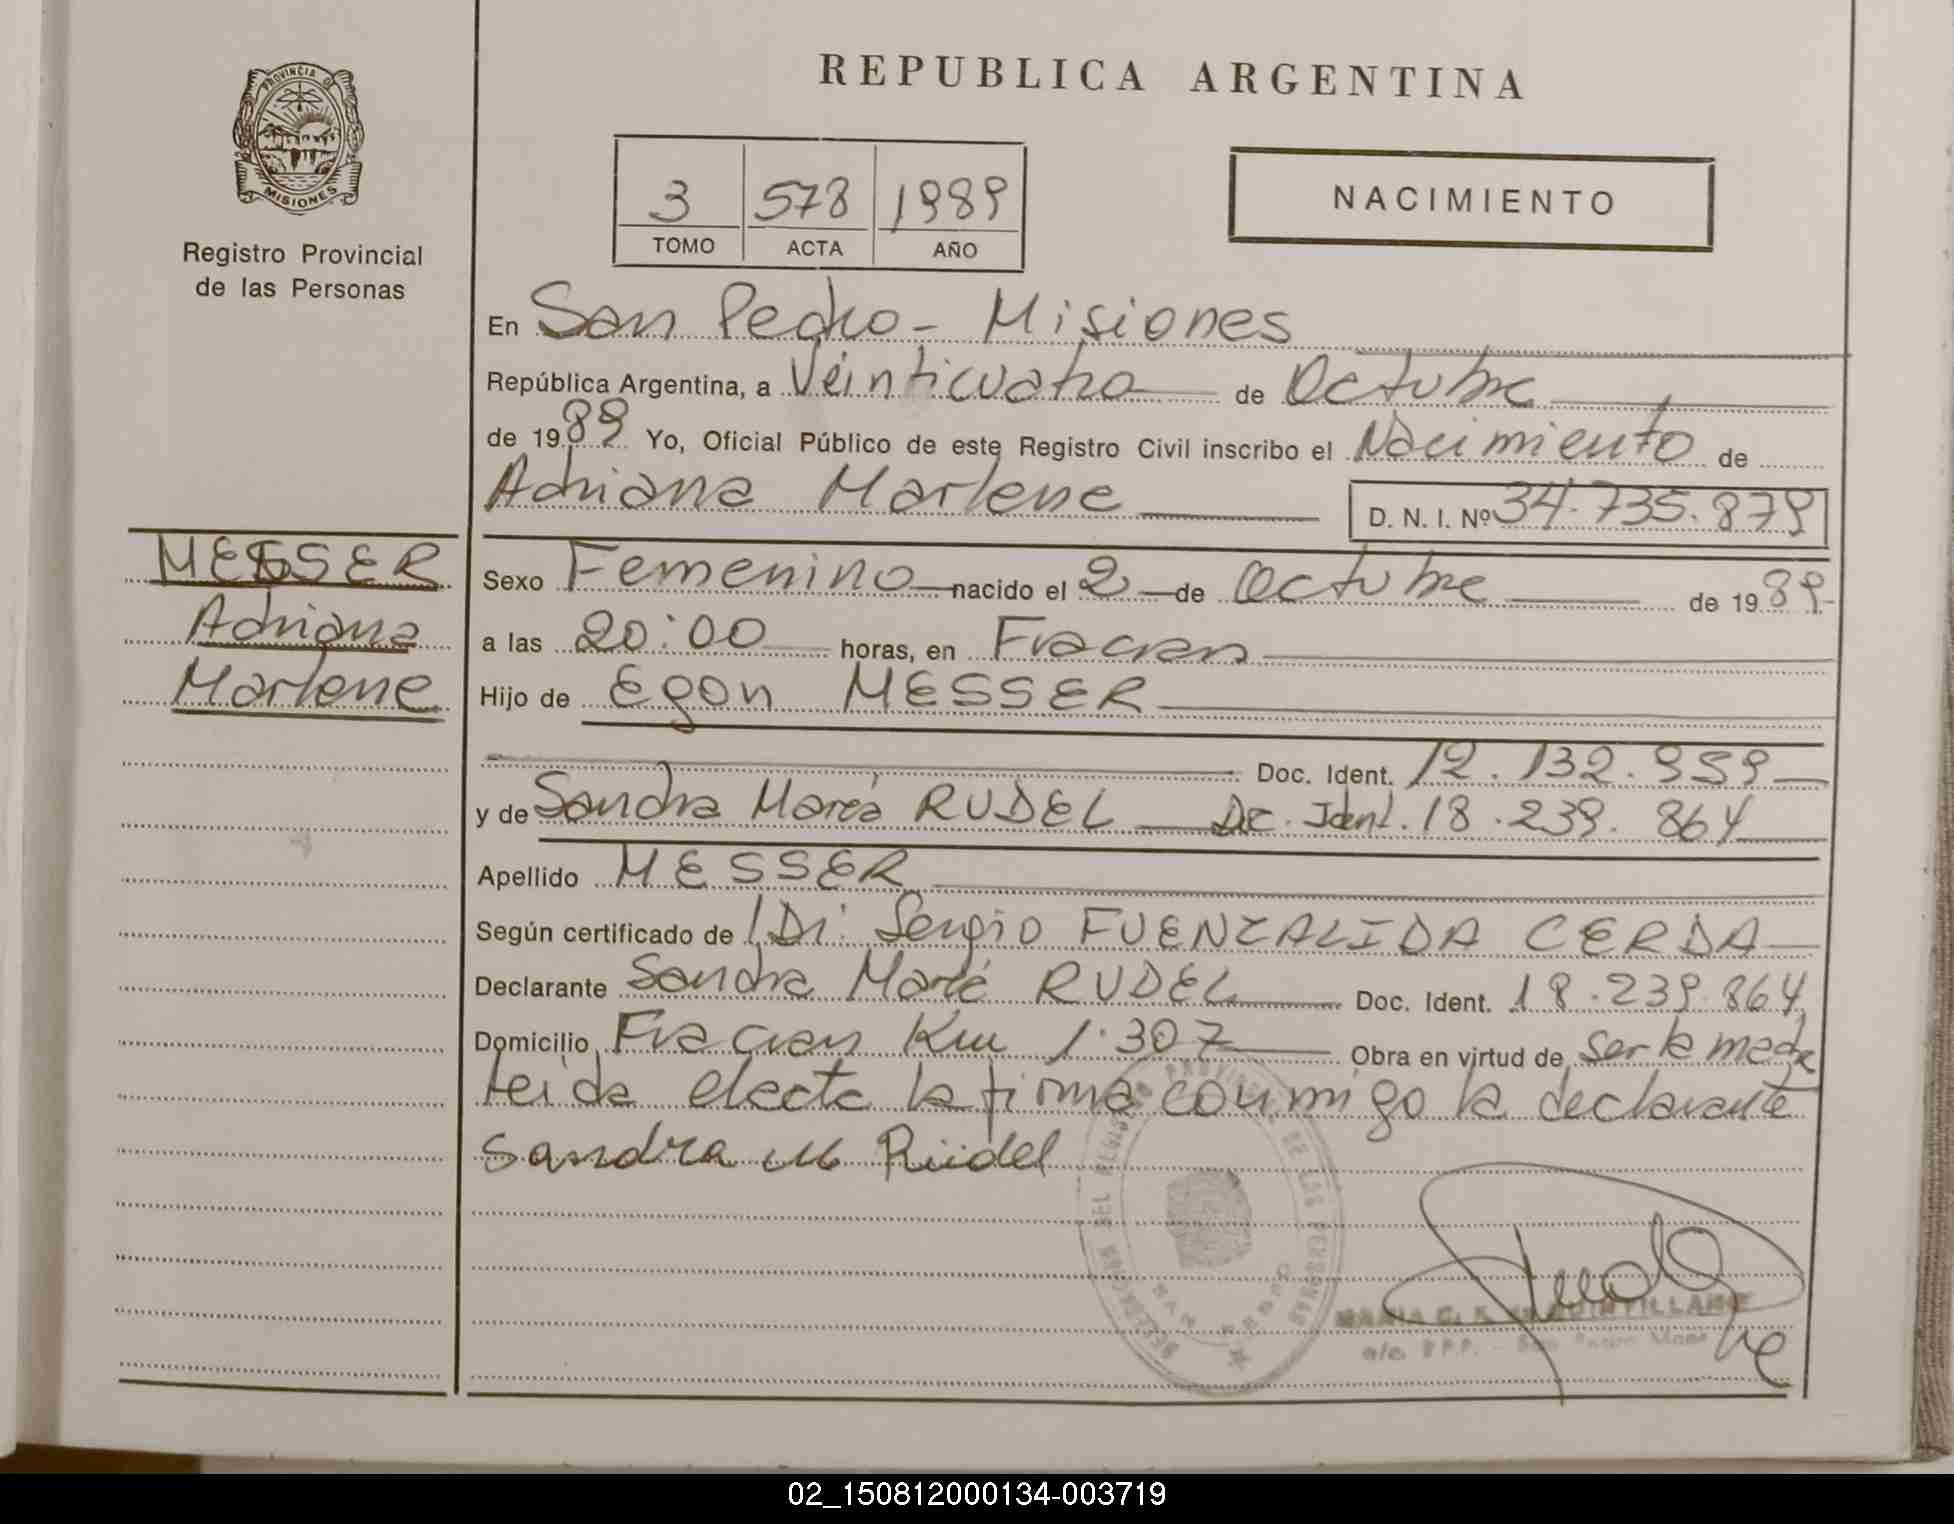 REPUBLICA ARGENTINA
PROVINCIA D
MISIONES
Registro Provincial
de las Personas
3 578 1989
TOMO ACTA AÑO
NACIMIENTO
En San Pedro - Misiones
República Argentina, a Veinticuatro de Octubre
de 1989 Yo, Oficial Público de este Registro Civil inscribo el Nacimiento de
Adriana Marlene D. N. I. Nº 34.735.879
MESSER
Adriana
Marlene
Sexo Femenino nacido el 2 de Octubre de 1989
a las 20:00 horas, en Fracran
Hijo de Egon MESSER
Doc. Ident. 12.132.959
y de Sandra María RUDEL Doc. Ident. 18.239.864
Apellido MESSER
Según certificado de Dr. Sergio FUENZALIDA CERDA
Declarante Sandra María RUDEL Doc. Ident. 18.239.864
Domicilio Fracran Km 1.307 Obra en virtud de ser la madre
Leida el acta la firma conmigo la declarante
Sandra M Rüdel
DELEGACION DEL REGISTRO PROVINCIAL DE LAS PERSONAS
SAN PEDRO
MARIA G. QUINTILLAN
a/c. R.P.P. - San Pedro Mnes
02_150812000134-003719